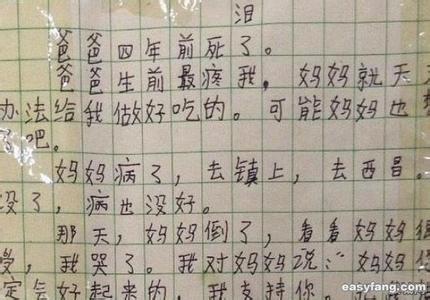 泪
爸爸四年前死了。
爸爸生前最疼我，妈妈就天
办法给我做好吃的。可能妈妈也
了吧。
妈妈病了，去镇上，去西昌。
没了，病也没好。
那天，妈妈倒了，看看妈妈
受，我哭了。我对妈妈说："妈妈
定会好起来的，我支持你。
easyfang.com